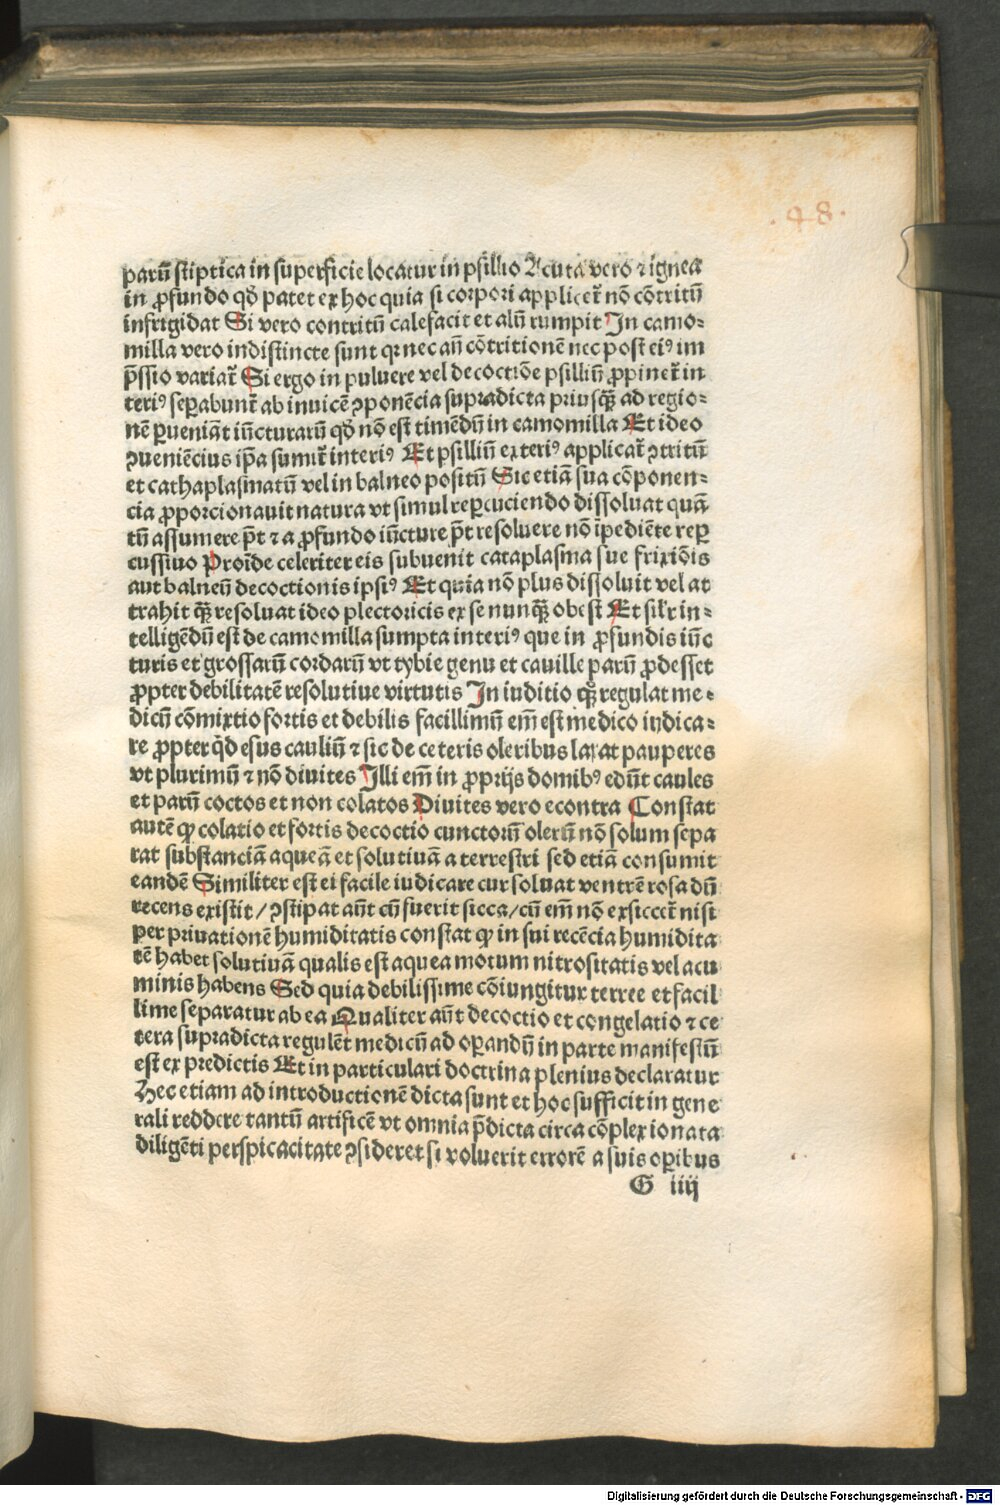 .48.
parū stiptica in superficie locatur in psillio Acuta vero ⁊ ignea
in ꝓfundo qd̄ patet ex hoc quia si corpori applicet᷑ nō cōtritū
infrigidat Si vero contritū calefacit et alū rumpit In camo⸗
milla vero indistincte sunt qꝛ nec an̄ cōtritionē nec post eiꝰ im
p̄ssio variat᷑ Si ergo in puluere vel decoctiōe psilliū ꝓpinet᷑ in
teriꝰ seꝑabunt᷑ ab inuicē ꝯponēcia supradicta priusqꝫ̄ ad regio⸗
nē ꝑueniāt iūcturarū qd̄ nō est timēdū in camomilla Et ideo
ꝯueniēcius ip̄a sumit᷑ interiꝰ Et psilliū exteriꝰ applicat᷑ ꝯtritū
et cathaplasmatū vel in balneo positū Sic etiā sua cōponen⸗
cia ꝓporcionauit natura vt simul reꝑcuciendo dissoluat quā
tū assumere p̄t ⁊ a ꝓfundo iūcture p̄t resoluere nō īpediēte reꝑ
cussiuo Proīde celeriter eis subuenit cataplasma siue frixiōis
aut balneū decoctionis ipsiꝰ Et quia nō plus dissoluit vel at
trahit qꝫ̄ resoluat ideo plectoricis ex se nunqꝫ̄ obest Et sil̄r in⸗
telligēdū est de camomilla sumpta interiꝰ que in ꝓfundis iūc
turis et grossarū cordarū vt tybie genu et cauille parū ꝓdesset
ꝓpter debilitatē resolutiue virtutis In iuditio qꝫ̄ regulat me⸗
dicū cōmixtio fortis et debilis facillimū em̄ est medico iudica⸗
re ꝓpter qd̄ esus cauliū ⁊ sic de ceteris oleribus laxat pauperes
vt plurimū ⁊ nō diuites Illi em̄ in ꝓprijs domibꝰ edūt caules
et parū coctos et non colatos Diuites vero econtra Constat
autē ꝙ colatio et fortis decoctio cunctorū olerū nō solum sepa
rat substanciā aqueā et solutiuā a terrestri sed etiā consumit
eandē Similiter est ei facile iudicare cur soluat ventrē rosa dū
recens existit / ꝯstipat aūt cū fuerit sicca / cū em̄ nō exsiccet᷑ nisi
per priuationē humiditatis constat ꝙ in sui recēcia humidita
tē habet solutiuā qualis est aquea motum nitrositatis vel acu
minis habens Sed quia debilissime cōiungitur terree et facil
lime separatur ab ea Qualiter aūt decoctio et congelatio ⁊ ce
tera supradicta regulēt medicū ad oꝑandū in parte manifestū
est ex predictis Et in particulari doctrina plenius declaratur
Hec etiam ad introductionē dicta sunt et hoc sufficit in gene
rali reddere tantū artificē vt omnia p̄dicta circa cōplexionata
diligēti perspicacitate ꝯsideret si voluerit errorē a suis oꝑibus
G iiij
Digitalisierung gefördert durch die Deutsche Forschungsgemeinschaft - DFG